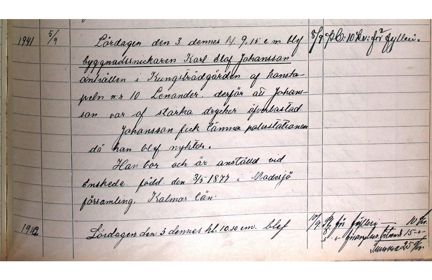 1941 5/9 Lördagen den 3 dennes kl. 9.15 e m blef 5/9 10 kr. för fylleri.
byggnadssnickaren Karl Olof Johansson
anträffad i Kungsträdgården af konsta-
peln nr 10 Lenander. derför att Johans-
son var af starka drycker öfverlastad
Johansson fick lämna polisstationen
då han blef nykter.
Han bor och är anställd vid
Enskede född den 3/5 1877 i Madesjö
församling. Kalmar län
Lördagen den 3 dennes kl. 10.10 em. blef för fylleri 10 Kr.
15
Summa 25 Kr.